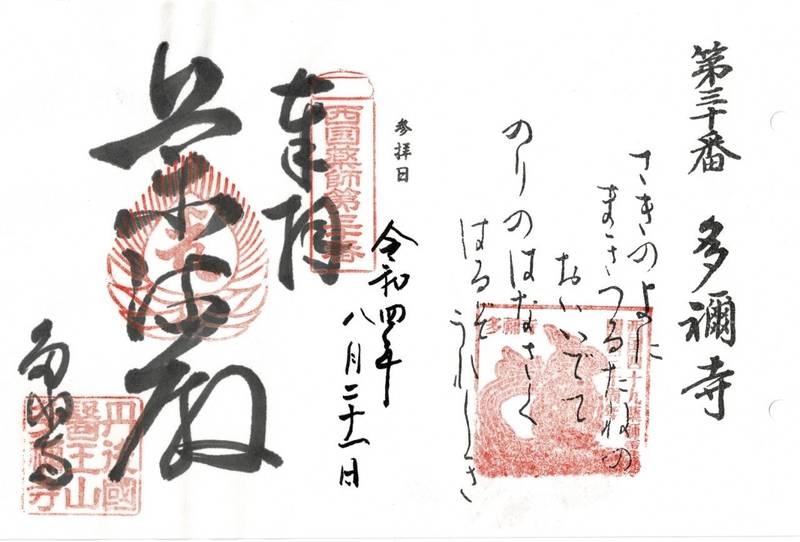 第三十番 多禰寺
さきのよに
まきつるたねの
おいいでて
のりのはなさく
はるぞ
うれしき
参拝日
令和四年
八月二十一日
奉拝
西国薬師第三十番
薬師殿
多禰寺
丹後國
醫王山
多禰寺